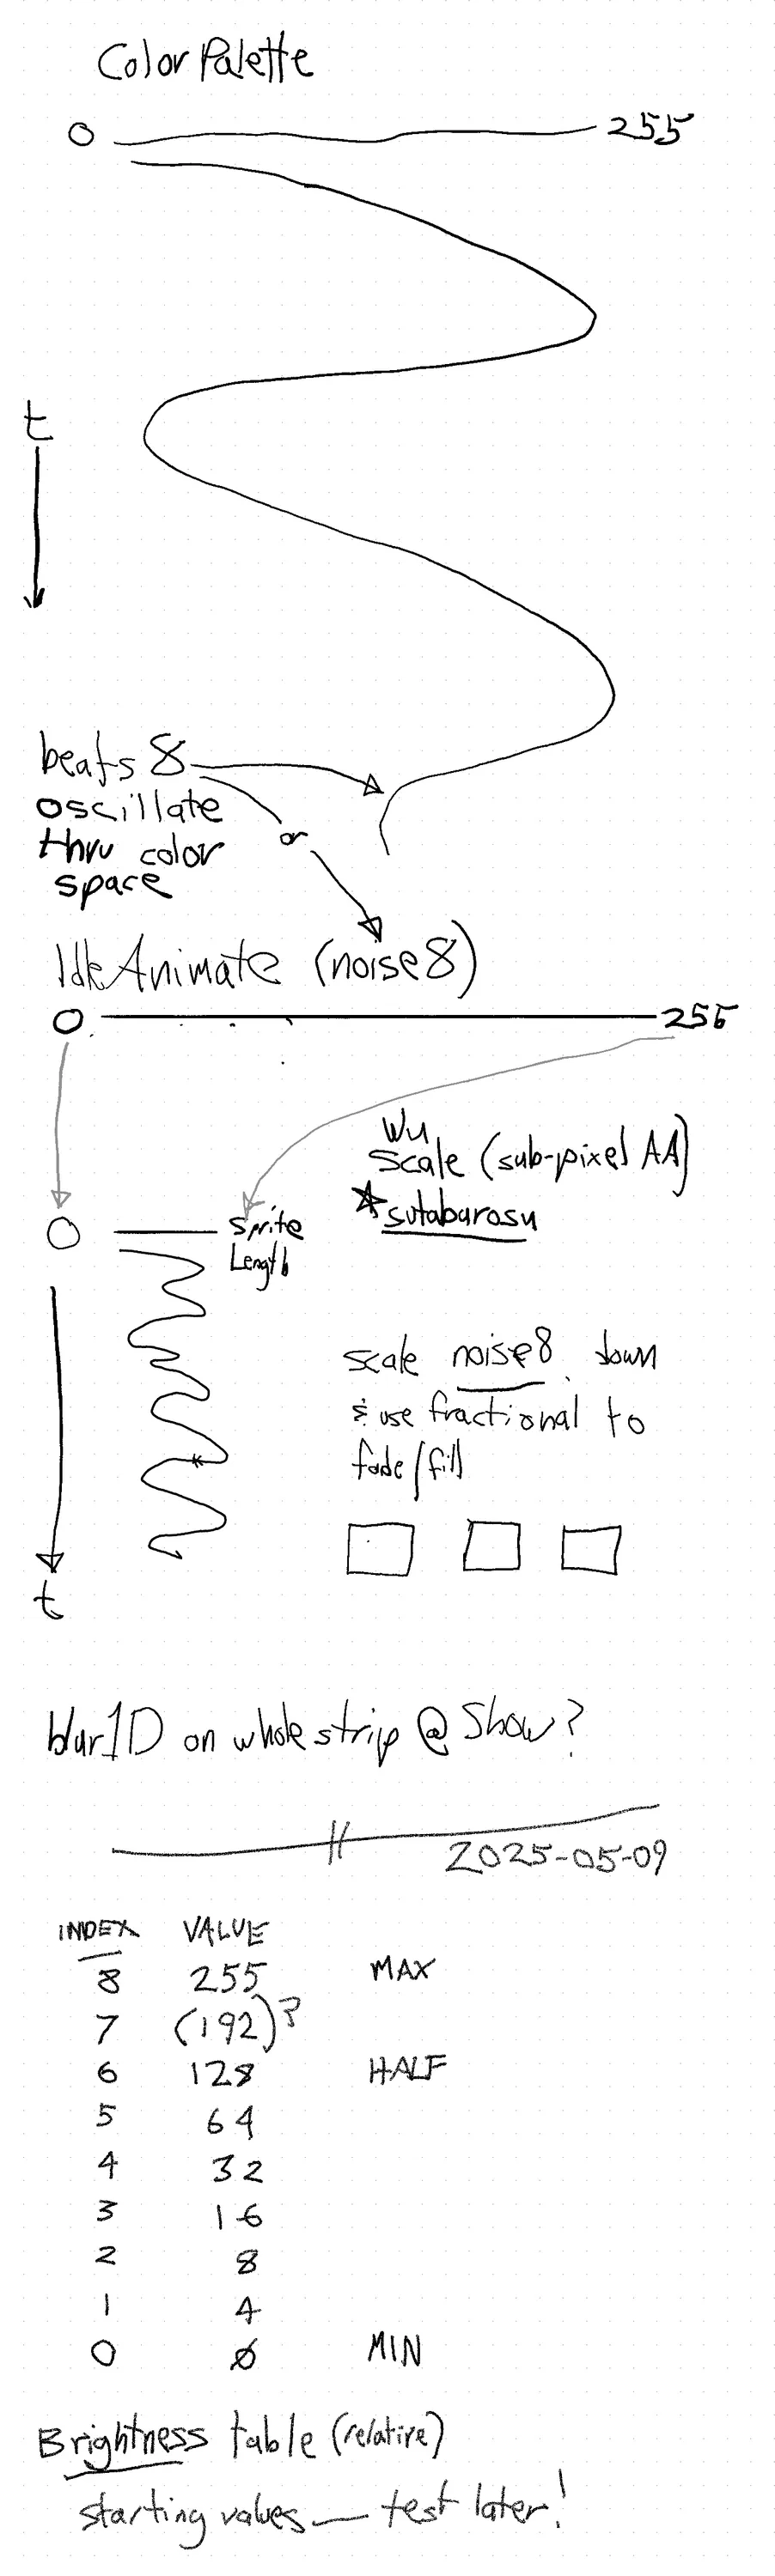 Color Palette
0 255
t
beats 8
or
oscillate
thru color
space
IdleAnimate (noise8)
0 255
Wu
scale (sub-pixel AA)
sutabarosu
0 sprite
Length
scale noise8 down
& use fractional to
fade/fill
t
blur1D on whole strip @ Show?
2025-05-09
INDEX VALUE
8 255 MAX
7 (192)?
6 128 HALF
5 64
4 32
3 16
2 8
1 4
0 0 MIN
Brightness table (relative)
starting values — test later!